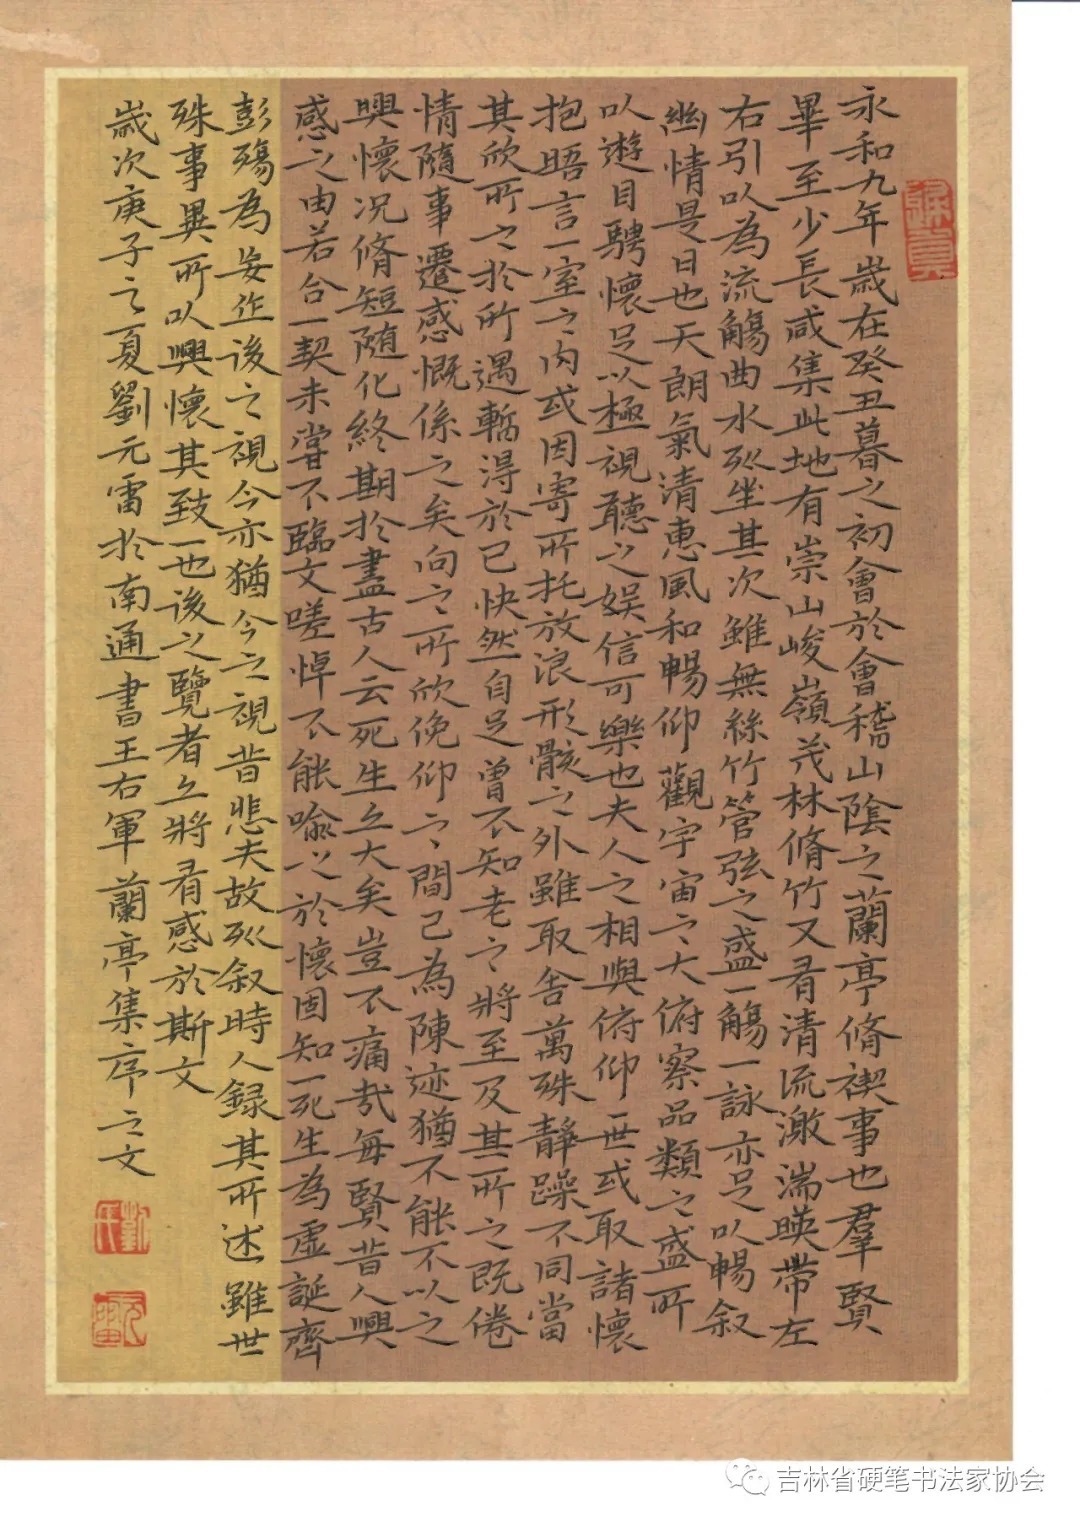 永和九年歲在癸丑暮之初會於會稽山陰之蘭亭脩禊事也羣賢
畢至少長咸集此地有崇山峻嶺茂林脩竹又有清流激湍暎帶左
右引以為流觴曲水列坐其次雖無絲竹管弦之盛一觴一詠亦足以暢叙
幽情是日也天朗氣清惠風和暢仰觀宇宙之大俯察品類之盛所
以遊目騁懷足以極視聽之娛信可樂也夫人之相與俯仰一世或取諸懷
抱晤言一室之内或因寄所托放浪形骸之外雖取舍萬殊靜躁不同當
其欣所之於所遇暫得於己快然自足曾不知老之將至及其所之既倦
情隨事遷感慨係之矣向之所欣俛仰之間已為陳迹猶不能不以之
興懷况脩短随化終期於盡古人云死生之大矣豈不痛哉每賢昔人興
感之由若合一契未嘗不臨文嗟悼不能喻之於懷固知一死生為虛誕齊
彭殤為妄作後之視今亦猶今之視昔悲夫故列叙時人録其所述雖世
殊事異所以興懷其致一也後之覽者亦將有感於斯文
歲次庚子之夏劉元雷於南通書王右軍蘭亭集序之文
劉氏
元雷
吉林省硬笔书法家协会